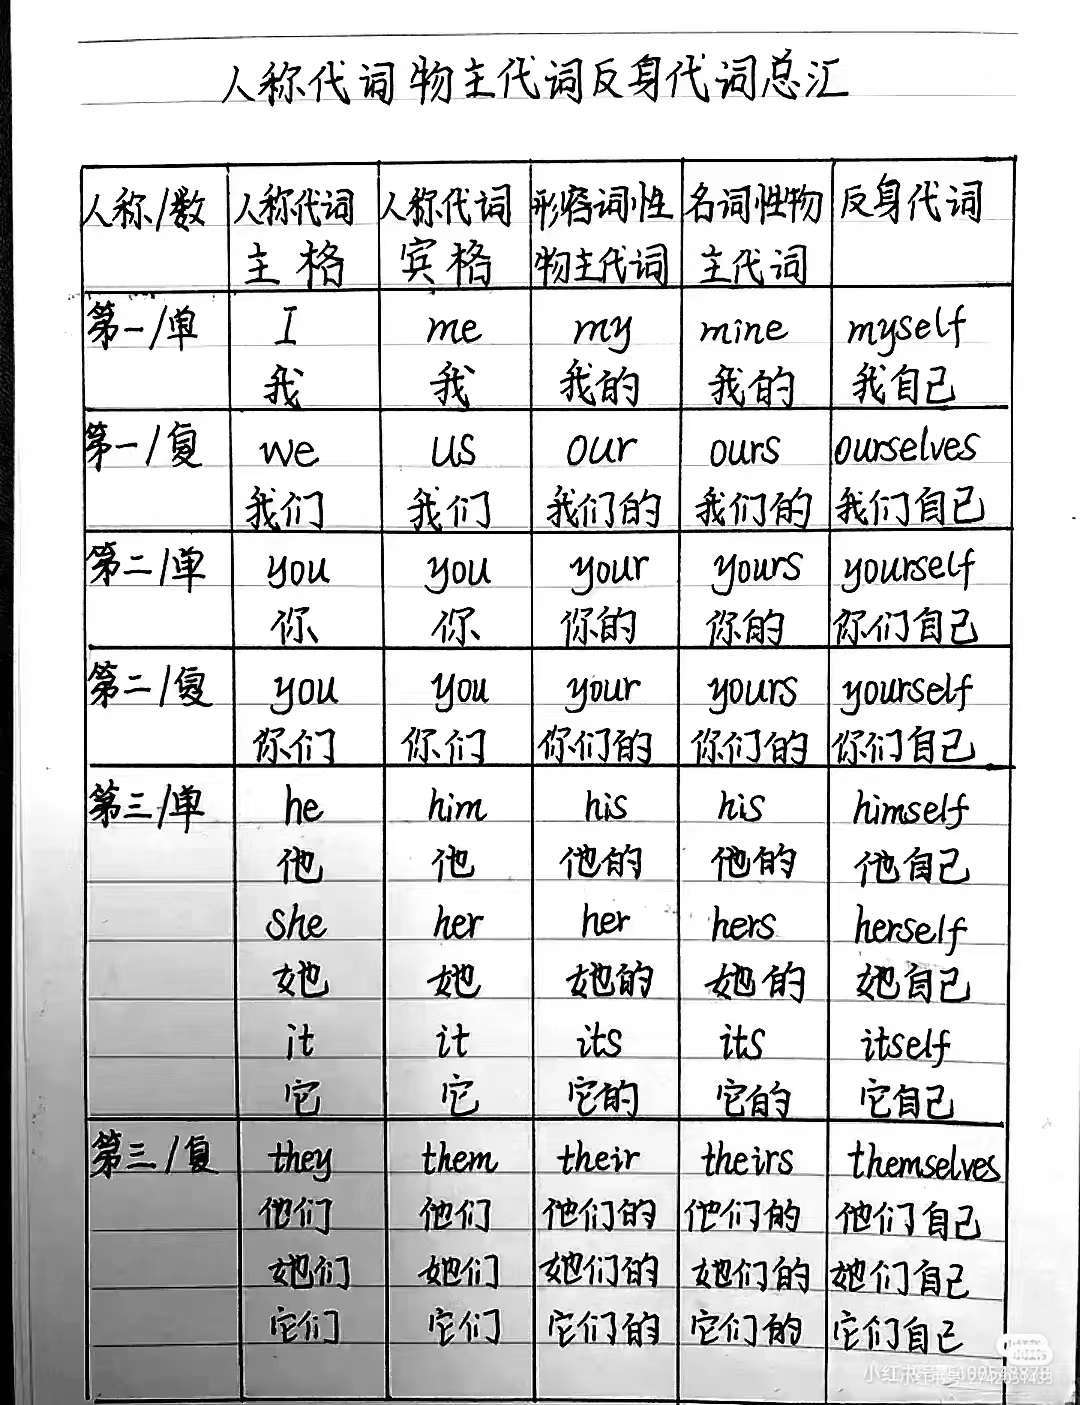 人称代词 物主代词反身代词总汇
人称/数 人称代词 人称代词 形容词性 名词性物 反身代词
主格 宾格 物主代词 主代词
第一/单 I me my mine myself
我 我 我的 我的 我自己
第一/复 we us our ours ourselves
我们 我们 我们的 我们的 我们自己
第二/单 you you your yours yourself
你 你 你的 你的 你们自己
第二/复 you you your yours yourself
你们 你们 你们的 你们的 你们自己
第三/单 he him his his himself
他 他 他的 他的 他自己
she her her hers herself
她 她 她的 她的 她自己
it it its its itself
它 它 它的 它的 它自己
第三/复 they them their theirs themselves
他们 他们 他们的 他们的 他们自己
她们 她们 她们的 她们的 她们自己
它们 它们 它们的 它们的 它们自己
小红书